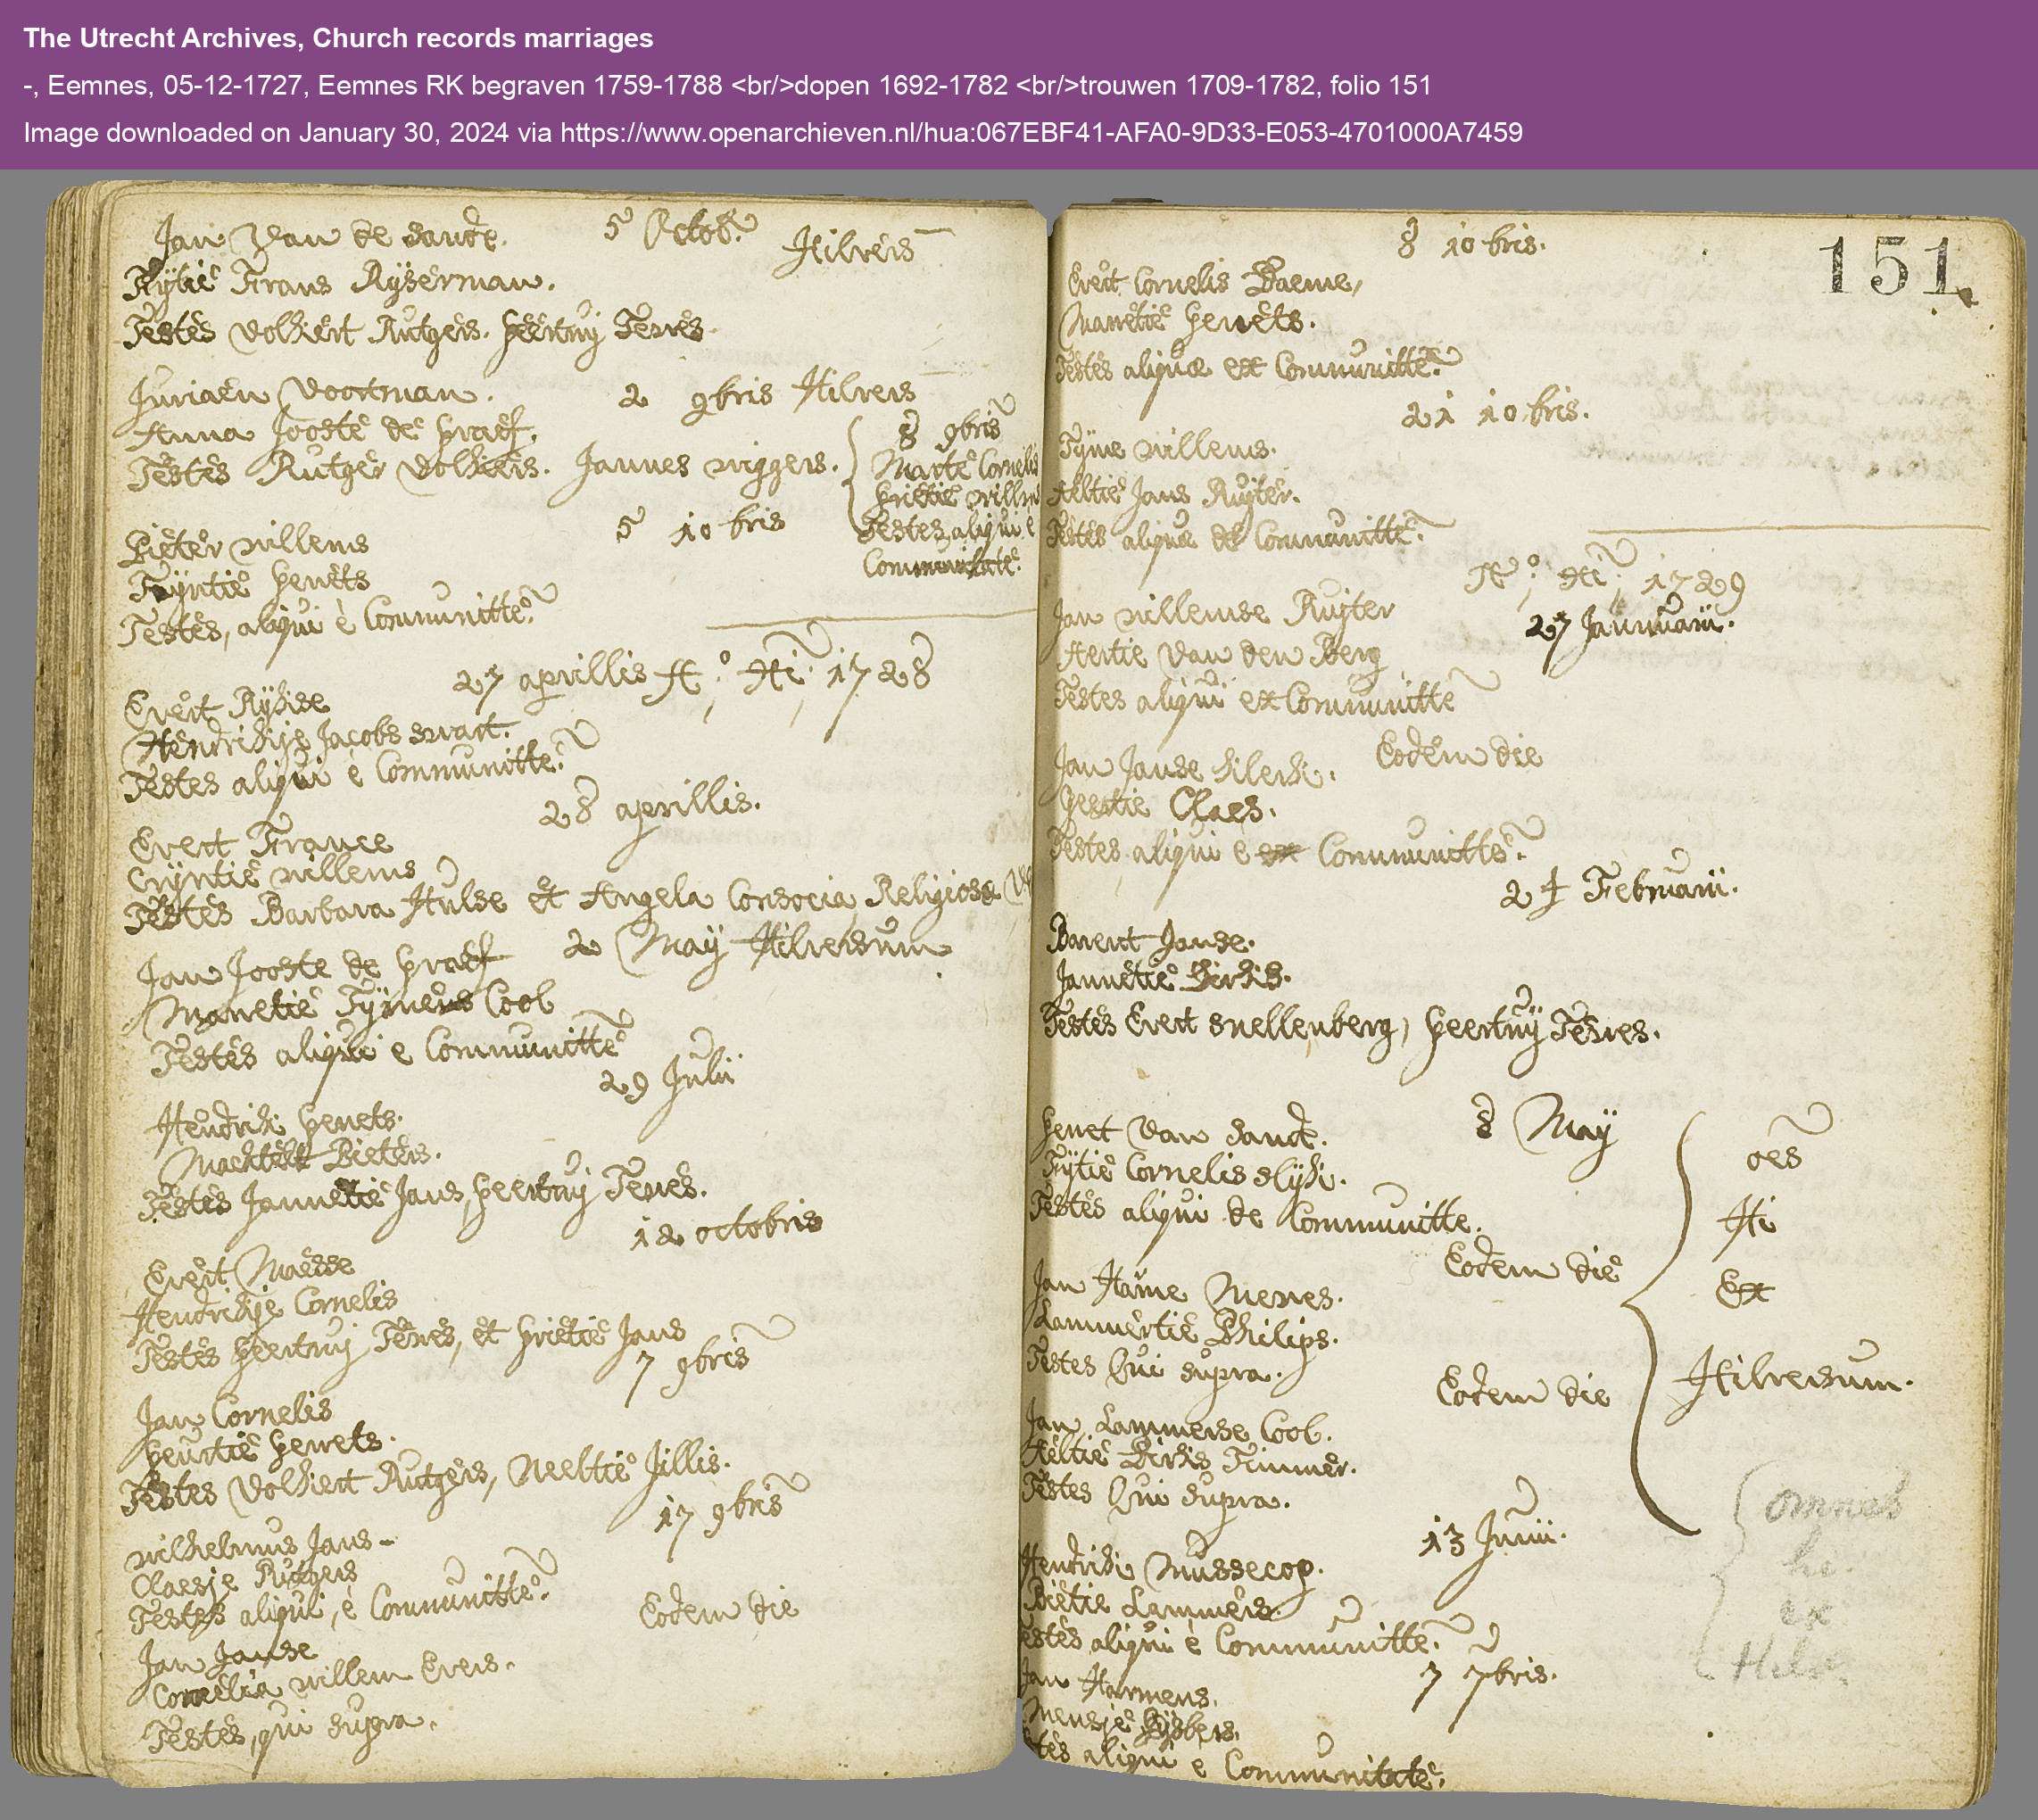 The Utrecht Archives, Church records marriages
-, Eemnes, 05-12-1727, Eemnes RK begraven 1759-1788 <br/>dopen 1692-1782 <br/>trouwen 1709-1782, folio 151
Image downloaded on January 30, 2024 via https://www.openarchieven.nl/hua:067EBF41-AFA0-9D33-E053-4701000A7459
Jan Van de Sande. 5 Octob. Hilvers
Rytie Frans Ryserman.
Testes Volkert Rutgers. Geertruy Terres.
Juriaen Voortman. 2 9bris Hilvers
Anna Jooste de Graef.
Testes Rutger Volkers. Jannes Wiggers.
8 9bris
Marte Cornelis
Grietie Willms
Testes, aliqui e
Communitate.
Pieter Willems 5 10bris
Tryntie Gerrets
Testes, aliqui è Communitte.
27 aprillis A.o Ai. 1728
Evert Rykse
Hendrikje Jacobs Swart.
Testes aliqui è Communitte.
28 aprillis.
Evert Franse
Cryntie Willems
Testes Barbara Hulse et Angela Consocia, Religiosa
Jan Jooste de Graef 2 May Hilversum
Marretie Tymens Cool
Testes aliqui e Communitte
29 Julii
Hendrik Gerrets.
Machtelt Pieters.
Testes Jannetie Jans, Geertruy Terres.
12 octobris
Evert Maesse
Hendrikje Cornelis
Testes Geertruy Terres, et Grietie Jans
7 9bris
Jan Cornelis
Geurtie Gerrets.
Testes Volkert Rutgers, Neeltie Jillis.
17 9bris
Wilhelmus Jans
Claesje Rutgers
Testes aliqui, è Communitte.
Eodem die
Jan Janse
Cornelia Willem Evers.
Testes, qui supra.
151
8 10bris.
Evert Cornelis Daeme,
Marretie Gerrets.
Testes aliquae ex Communitte.
21 10bris.
Tyme Willems.
Aeltie Jans Ruyter.
Testes aliquae de Communitte.
A.o Ai. 1729
Jan Willemse Ruyter 27 Januuarii.
Aertie Van den Berg
Testes aliqui ex Communitte
Eodem die
Jan Janse
Geertie Claes.
Testes aliqui e ex Communitte.
24 Februarii.
Barent Janse.
Jannetie Dirks.
Testes Evert Snellenberg, Geertruy Terres.
8 May
Gerret Van Sande.
Tytie Cornelis Slyk.
Testes aliqui de Communitte.
Eodem die
Jan Harme
Lammertie Philips.
Testes Qui supra.
Eodem die
Jan Lammerse Cool.
Aeltie Dirks Timmer.
Testes Qui supra.
oes
Hi
Ex
Hilversum.
omnes
hi
ex
Hilv.
13 Junii.
Hendrik Mussecop.
Pietie Lammers.
Testes aliqui è Communitte.
7 7bris.
Jan Harmens.
Mensje Gysberts.
Testes aliqui e Communitate.